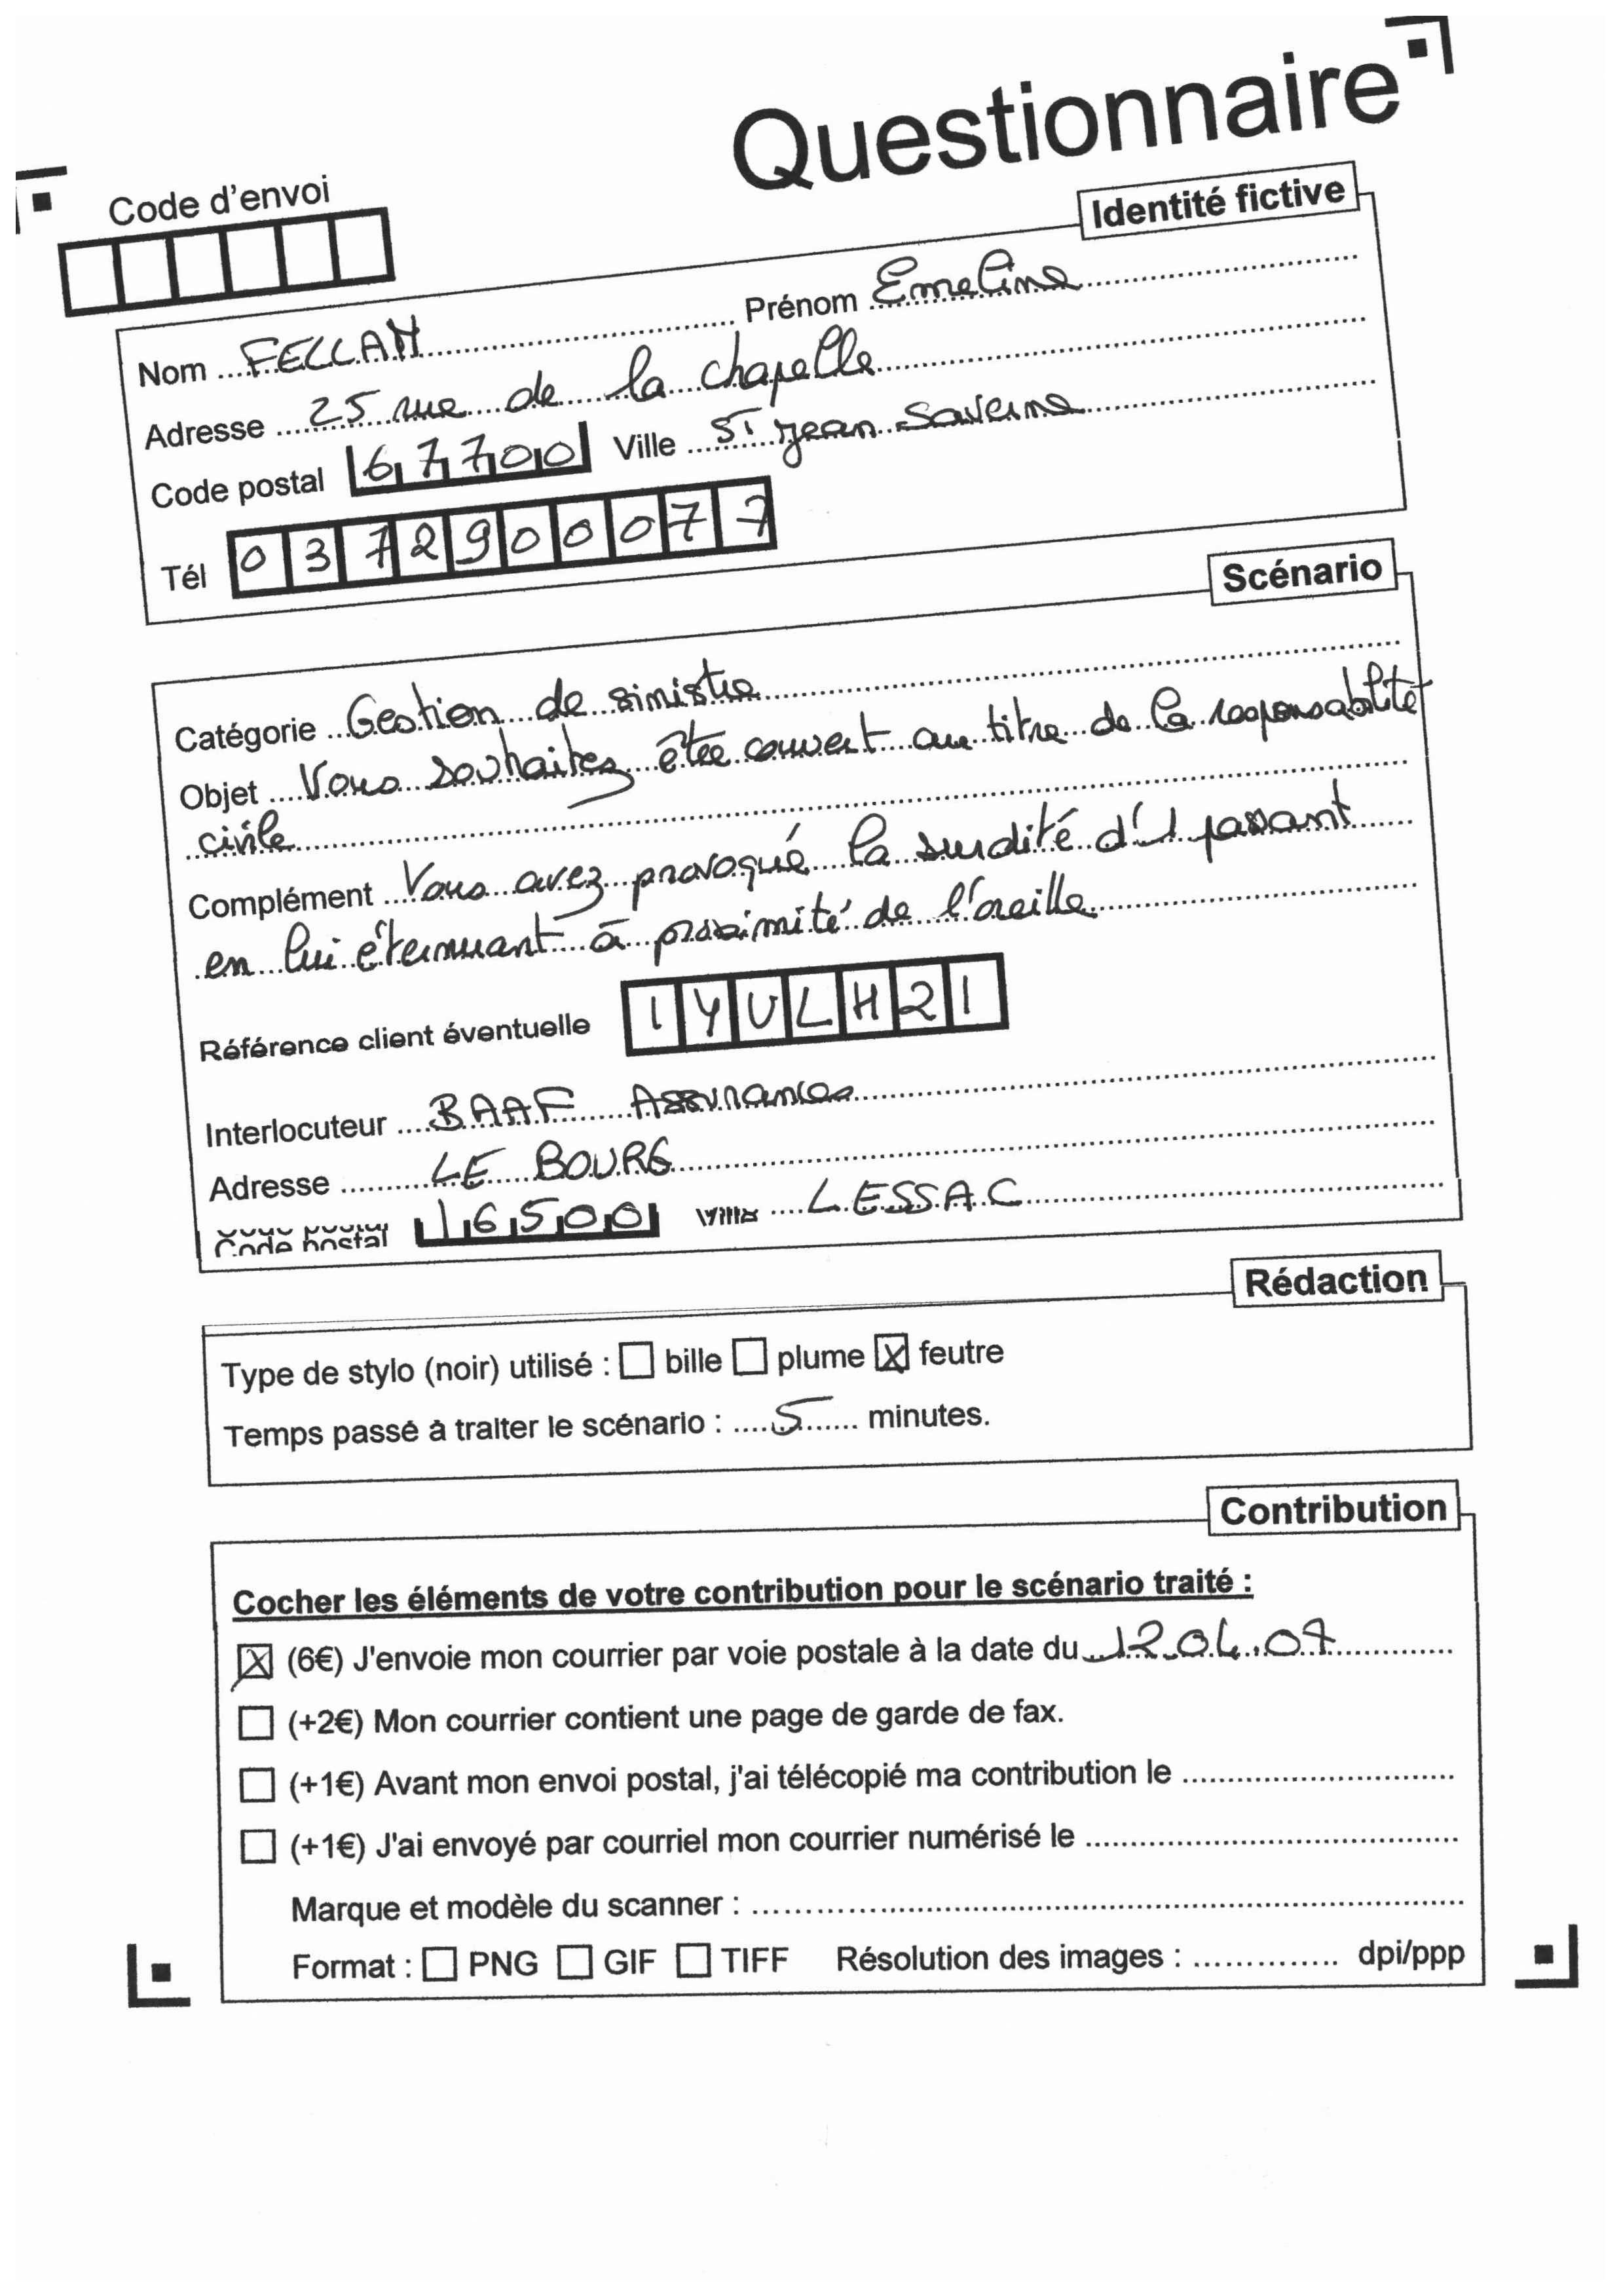 Questionnaire
Code d'envoi
Identité fictive
Nom FELLAH Prénom Emeline
Adresse 25 rue de la chapelle
Code postal 67700 Ville St jean Saverne
Tél 0372900077
Scénario
Catégorie Gestion de sinistre
Objet Vous souhaitez être couvert au titre de la responsablité
civile
Complément Vous avez provoqué la surdité d'1 passant
en lui éternuant à proximité de l'oreille
Référence client éventuelle IYULH21
Interlocuteur BAAF Assurances
Adresse LE BOURG
Code postal 16500 Ville LESSAC
Rédaction
Type de stylo (noir) utilisé : bille plume X feutre
Temps passé à traiter le scénario : 5 minutes.
Contribution
Cocher les éléments de votre contribution pour le scénario traité :
X (6€) J'envoie mon courrier par voie postale à la date du 12.04.07
(+2€) Mon courrier contient une page de garde de fax.
(+1€) Avant mon envoi postal, j'ai télécopié ma contribution le
(+1€) J'ai envoyé par courriel mon courrier numérisé le
Marque et modèle du scanner :
Format : PNG GIF TIFF Résolution des images : dpi/ppp